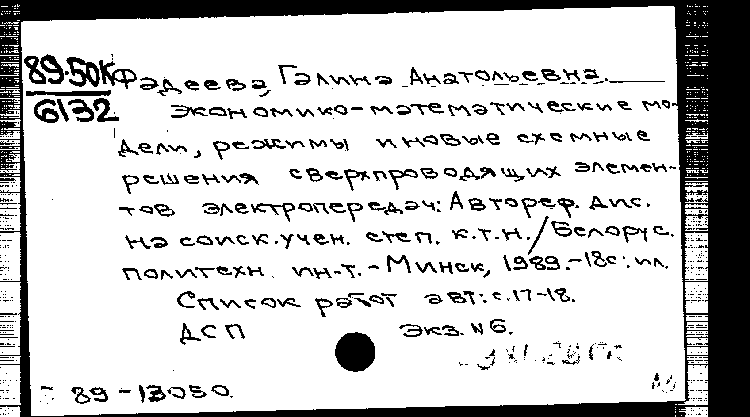 89-50К
6132
Фадеева, Галина Анатольевна.
Экономико-математические мо-
дели, режимы и новые схемные
решения сверхпроводящих элемен-
тов электропередач: Автореф. дис.
на соиск. учен. степ. к.т.н. / Белорус.
политехн. ин-т. - Минск, 1989. - 18с: ил.
Список работ авт: с. 17-18.
ДСП Экз. №6.
89-13050.